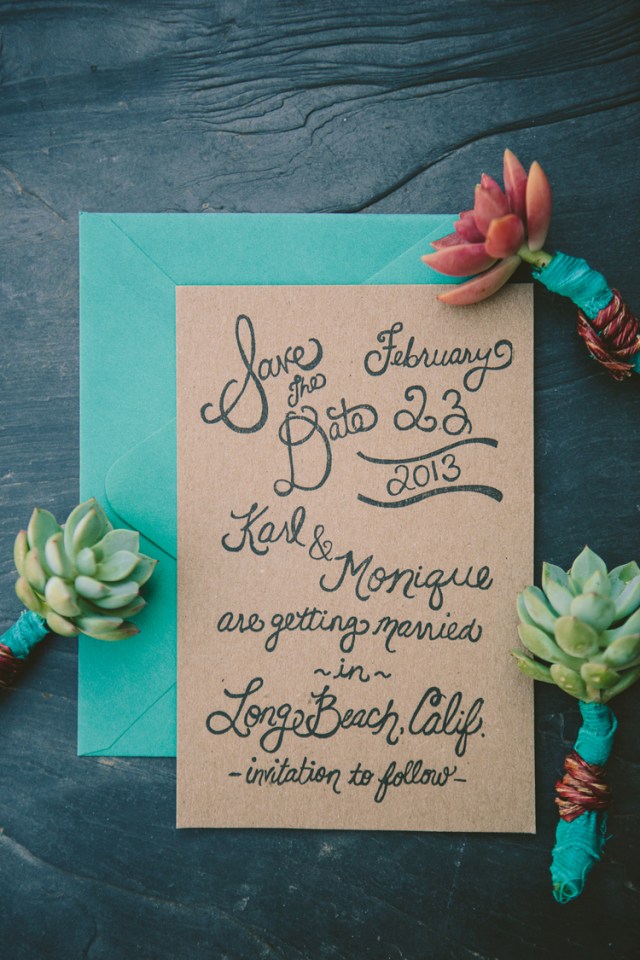 Save
the
Date
February
23
2013
Karl &
Monique
are getting married
~in~
Long Beach, Calif.
-invitation to follow-